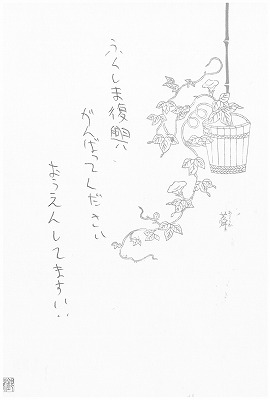 ふくしま復興
がんばってください
おうえんしてます!!